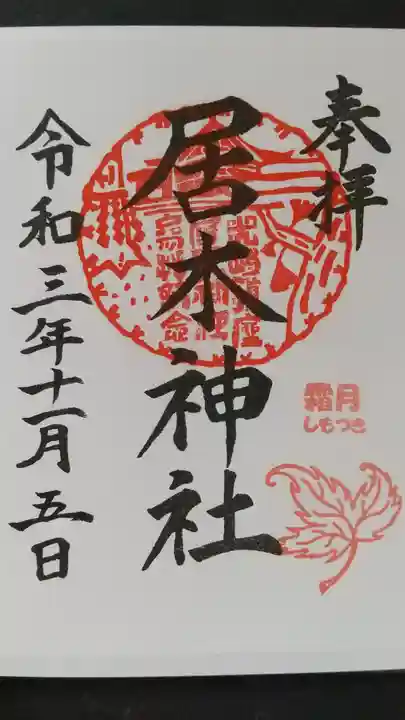 奉拝
居木神社
霜月
しもつき
令和三年十一月五日